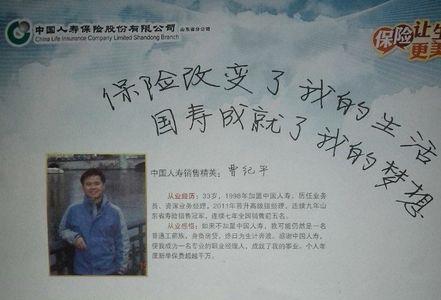 中国人寿保险股份有限公司 山东省分公司
China Life Insurance Company Limited Shandong Branch
保险让生
更美
保险改变了我的生活
国寿成就了我的梦想
中国人寿销售精英：曹纪平
从业经历：33岁，1998年加盟中国人寿，历任业务
员、资深业务经理，2011年晋升高级组经理，连续九年山
东省寿险销售冠军，连续七年全国销售前五名。
从业感悟：如果不加盟中国人寿，我可能仍然是一名
普通工薪族，身负房贷，终日为生计奔波。感谢中国人寿，
使我成为一名专业的职业经理人，成就了我的事业。个人年
度新单保费超越千万。